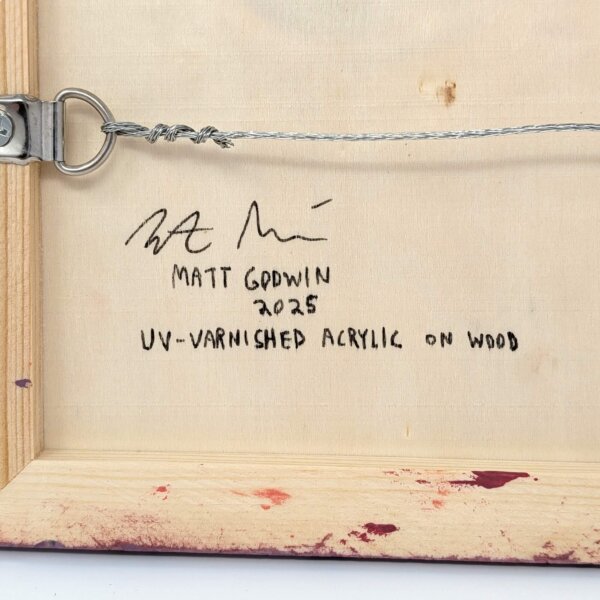 MATT GODWIN
2025
UV-VARNISHED ACRYLIC ON WOOD